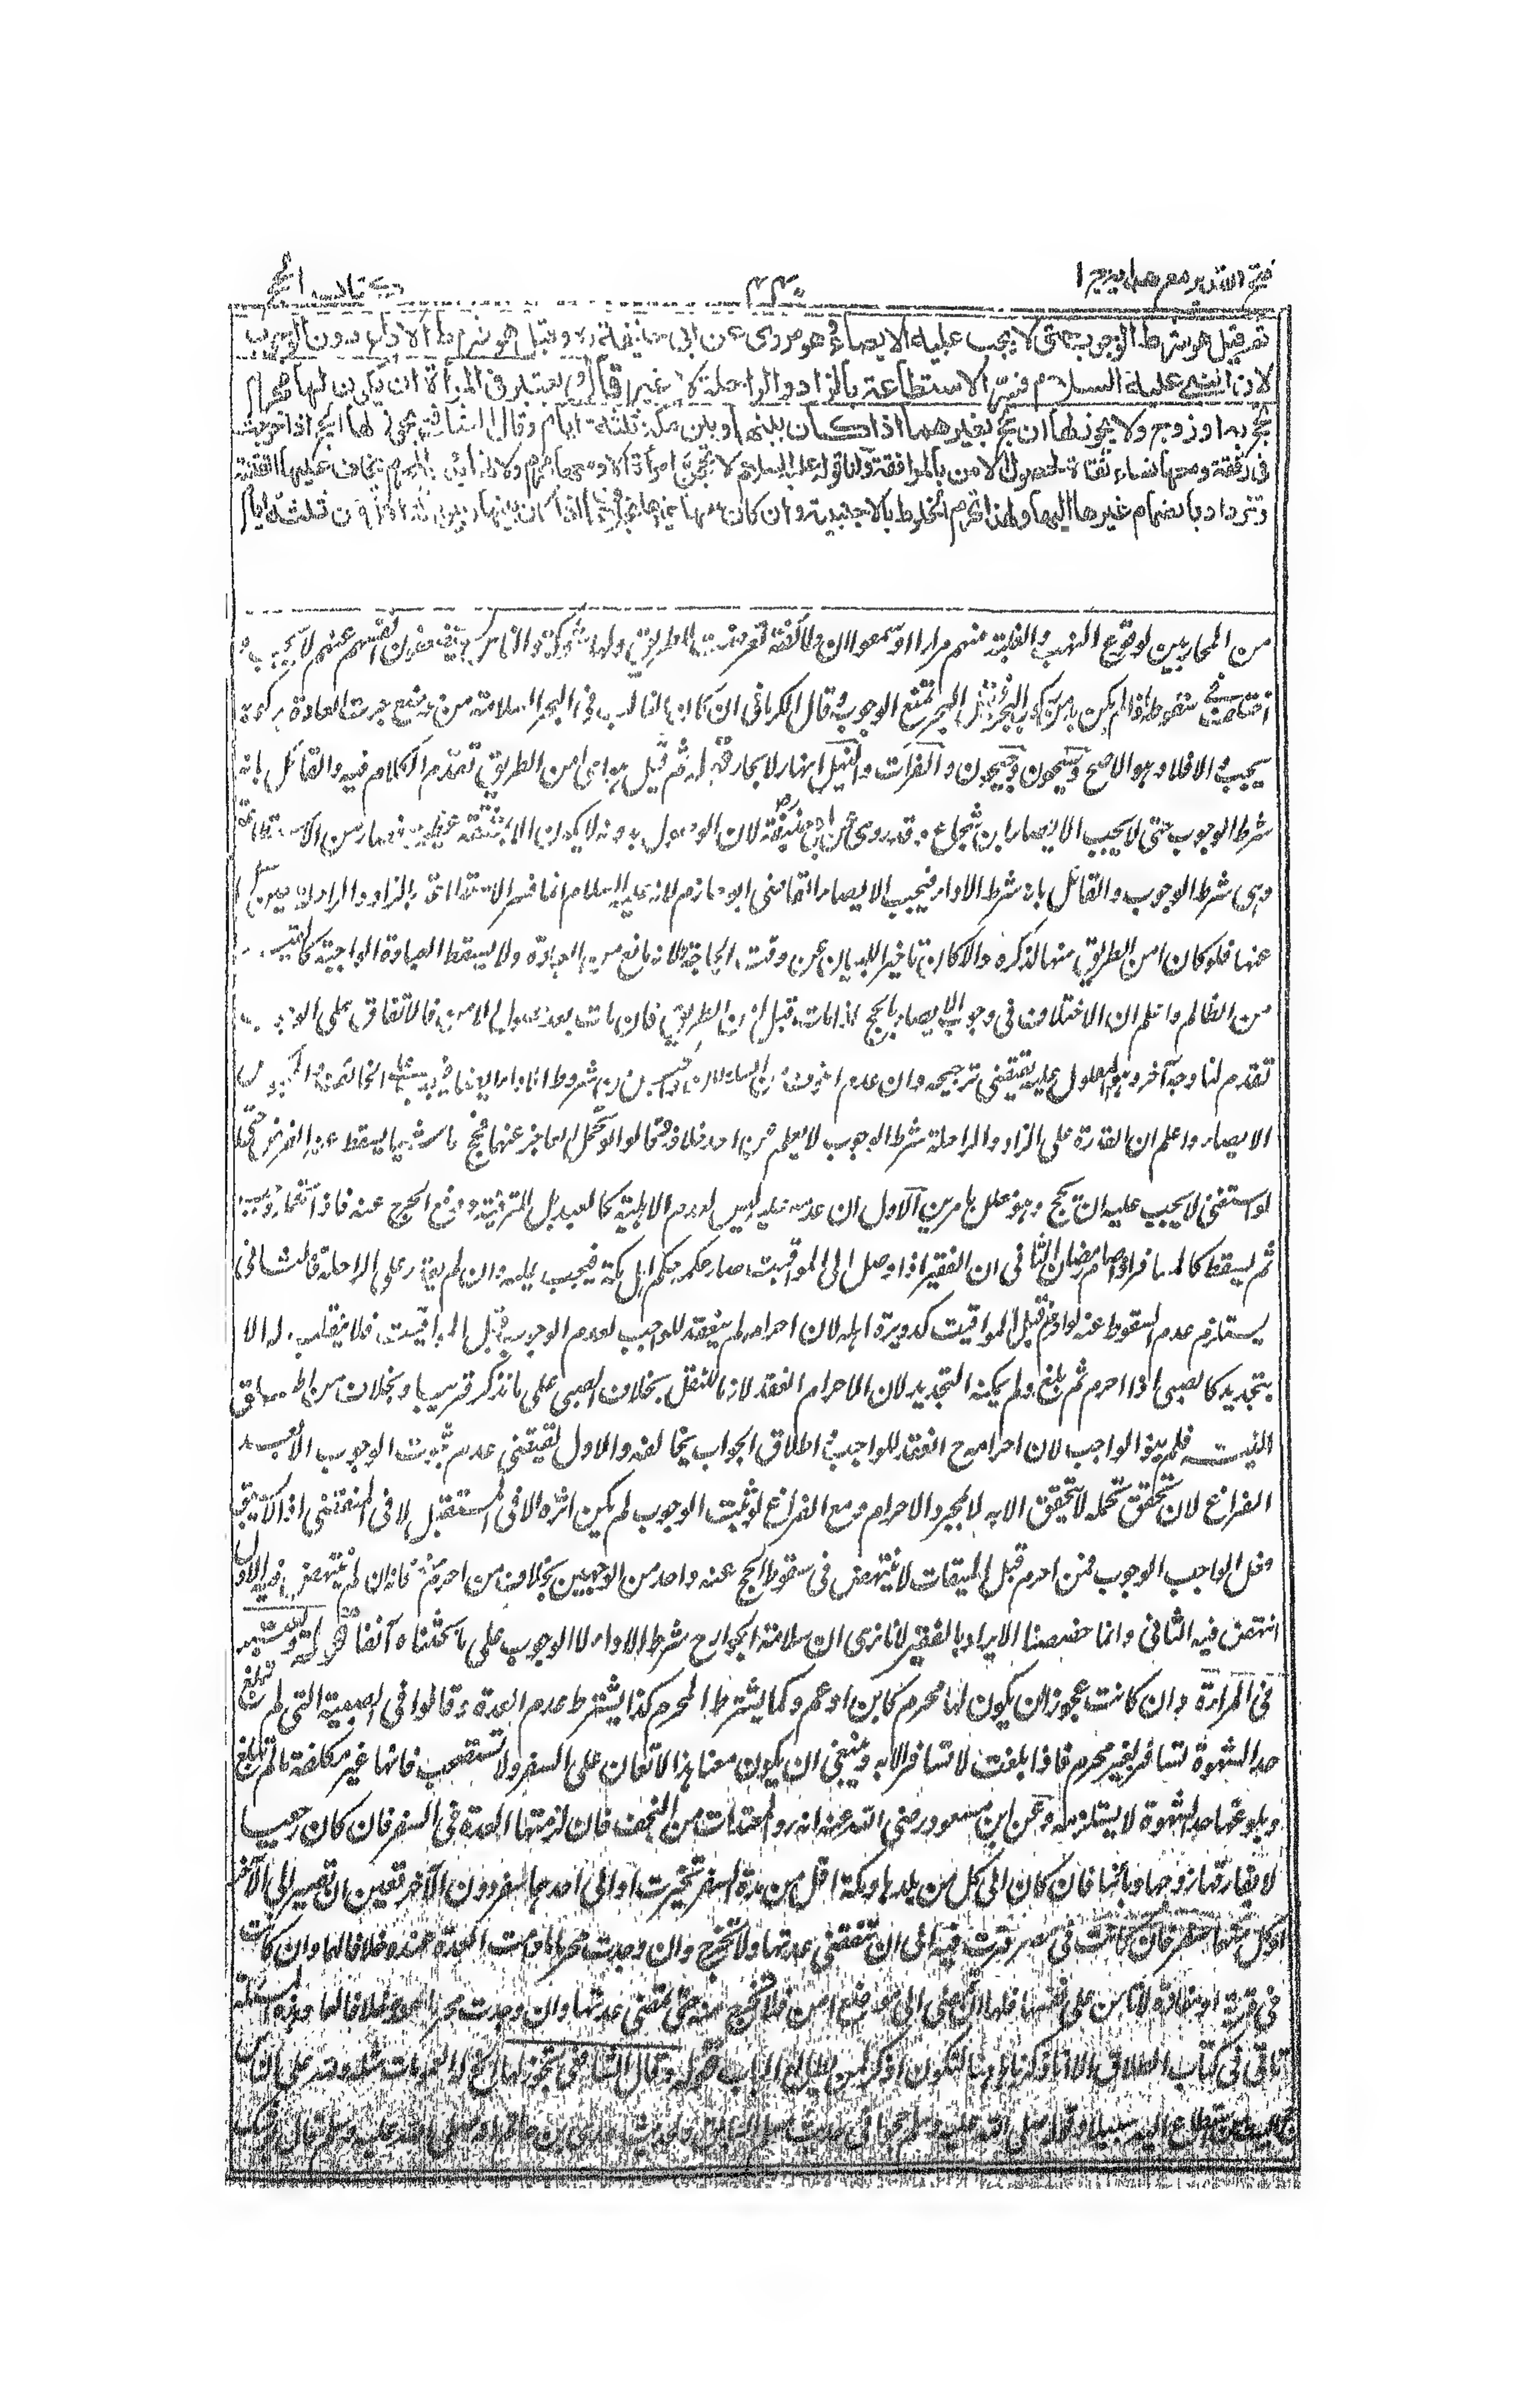 فتح القدير مع هدايه ج ١
٣٣٠
كتاب الحج
ثم قيل هو شرط الوجوب حتى لا يجب عليه الايصاء وهو مروى عن ابى حنيفة رح وقيل هو شرط الاداء دون الوجوب
لان النبى عليه السلام فسر الاستطاعة بالزاد والراحلة لا غير قال ويعتبر فى المرأة ان يكون لها محرم
تحج به او زوج ولا يجوز لها ان تحج بغيرهما اذا كان بينها وبين مكة ثلثة ايام وقال الشافعى يجوز لها الحج اذا خرجت
فى رفقة ومعها نساء ثقاة لحصول الامن بالموافقة ولنا قوله عليه السلام لا تحجن امرأة الا ومعها محرم ولانها بدون المحرم يخاف عليها الفتنة
وتزداد بانضمام غيرها اليها ولهذا تحرم الخلوة بالاجنبية وان كان معها غيرها بخلاف ما اذا كان بينها وبين مكة اقل من ثلثة ايام
من المحاربين لوقوع النهب والغلبة منهم مرارا او سمعوا ان طائفة تعرضت للطريق ولها شوكة والناس يستضعفون انفسهم عنهم لا يجب و
اختلف فى سقوطه اذا لم يكن بد من ركوب البحر فقيل البحر يمنع الوجوب وقال الكرمانى ان كان الغالب فى البحر السلامة من موضع جرت العادة بركوبه
يجب والا فلا وهو الاصح وسيحون وجيحون والفرات والنيل انهار لا بحار قوله ثم قيل هو اى امن الطريق تقدم الكلام فيه والقائل بانه
شرط الوجوب حتى لا يجب الايصاء ابن شجاع وقد روى عن ابى حنيفة رض لان الوصول بدونه لا يكون الا بمشقة عظيمة فصار من الاستطاعة
وهى شرط الوجوب والقائل بانه شرط الاداء فيجب الايصاء القاضى ابو حازم لانه عليه السلام انما فسر الاستطاعة بالزاد والراحلة حين سئل
عنها فلو كان امن الطريق منها لذكره والا كان تاخير البيان عن وقت الحاجة ولانه مانع من العبادة ولا يسقط العبادة الواجبة كالقيد
من الظالم واعلم ان الاختلاف فى وجوب الايصاء بالحج اذا مات قبل امن الطريق فان مات بعد حصول الامن فالاتفاق على الوجوب
تقدم لنا وجه آخر وهو المعول عليه يقتضى ترجيحه وان عدم الخوف من السلطان والحبس من شروط الاداء ايضا فيجب على الخائف والمحبوس
الايصاء واعلم ان القدرة على الزاد والراحلة شرط الوجوب لا يعلم عن احد خلافه وقالوا لو تحمل العاجز عنهما فحج ماشيا يسقط عنه الفرض حتى
لو استغنى لا يجب عليه ان يحج وهو معلل بامرين الاول ان عدمه عليه ليس لعدم الاهلية كالعبد بل للترفيه ودفع الحرج عنه فاذا تحمله وجب
ثم يسقط كالمسافر اذا صام رمضان الثانى ان الفقير اذا وصل الى المواقيت صار حكمه حكم اهل مكة فيجب عليه وان لم يقدر على الراحلة فالثانى
يستلزم عدم السقوط عنه لو احرم قبل المواقيت كدويرة اهله لان احرامه لم ينعقد للواجب لعدم الوجوب قبل المواقيت فلا ينقلب له الا
بتجديد كالصبى اذا احرم ثم بلغ ولم يمكنه التجديد لان الاحرام انعقد لازما للنفل بخلاف الصبى على ما نذكر قريبا وبخلاف من اطلق
النية فلم ينو الواجب لان احرامه ح انعقد للواجب واطلاق الجواب يخالفه والاول يقتضى عدم ثبوت الوجوب الا بعد
الفراغ لان تحقق تحمله لا يتحقق الا به لا بمجرد الاحرام ومع الفراغ لو ثبت الوجوب لم يكن اثره الا فى المستقبل لا فى المنقضى اذ لا يسبق
فعل الواجب الوجوب فمن احرم قبل الميقات لا ينتهض فى سقوط الحج عنه واحد من الوجهين بخلاف من احرم منه فانه ان لم ينتهض فيه الاول
انتهض فيه الثانى وانما خصصنا الايراد بالفقير لانا نرى ان سلامة الجوارح شرط الاداء لا الوجوب على ما بحثناه آنفا قوله ويعتبر
فى المرأة وان كانت عجوزا ان يكون لها محرم كابن او عم وكما يشترط المحرم كذا يشترط عدم العدة وقالوا فى الصبية التى لم تبلغ
حد الشهوة تسافر بغير محرم فاذا بلغت لا تسافر الا به وينبغى ان يكون معناه هذا لا تعان على السفر ولا تستصحب فانها غير مكلفة ما لم تبلغ
وبلوغها حد الشهوة لا يستلزمه وعن ابن مسعود رضى الله عنه انه رد المعتدات من النجف فان لزمتها العدة فى السفر فان كان رجعيا
لا يفارقها زوجها او بائنا فان كان الى كل من بلدها ومكة اقل من مدة السفر تخيرت او الى احدهما سفر دون الآخر تعين ان تصير الى الآخر
او كل منهما سفر فان كانت فى مصر قرت فيه الى ان تنقضى عدتها ولا تخرج وان وجدت محرما ما دامت العدة عنده خلافا لهما وان كانت
فى قرية او مفازة لا تأمن على نفسها فلها ان تمضى الى موضع امن فلا تخرج منه حتى تمضى عدتها وان وجدت محرما عنده خلافا لهما وهذه المسئلة
تأتى فى كتاب الطلاق الا انا ذكرناها هنا لتكون اذكر لمن يطالع الباب قوله وقال الشافعى يجوز لها الحج له العمومات مثل ولله على الناس
حج البيت من استطاع اليه سبيلا وقوله صلى الله عليه وسلم حجوا